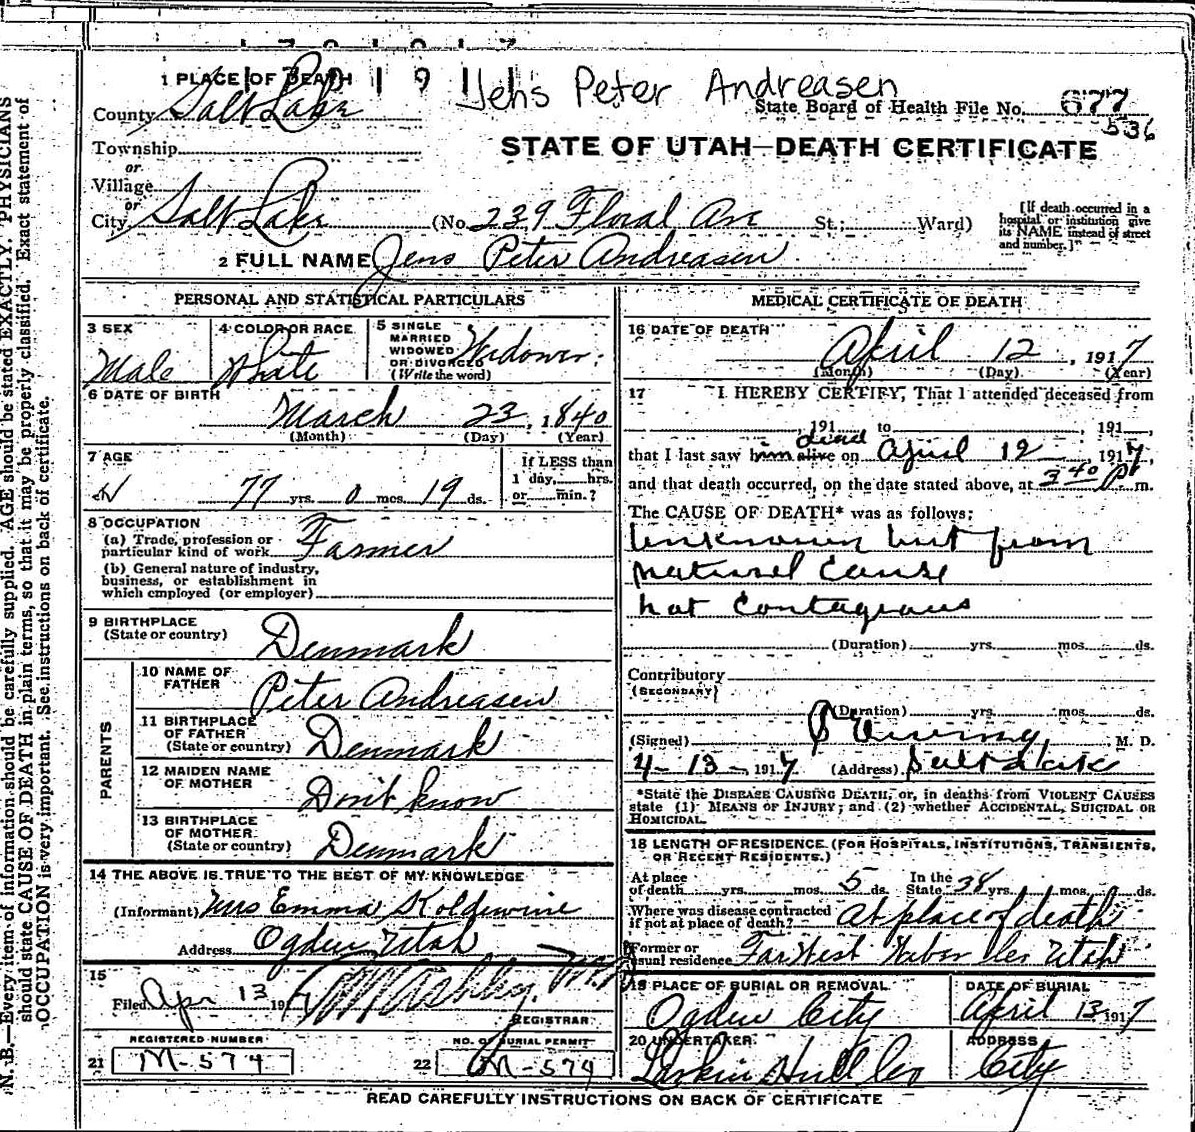 Jens Peter Andreasen
1 PLACE OF DEATH
County Salt Lake
State Board of Health File No. 677
536
Township
or
Village
or
City Salt Lake (No. 239 Floral Ave St; Ward)
STATE OF UTAH—DEATH CERTIFICATE
[If death occurred in a
hospital or institution give
its NAME instead of street
and number.]
2 FULL NAME Jens Peter Andreasen
PERSONAL AND STATISTICAL PARTICULARS
3 SEX
Male
4 COLOR OR RACE
White
5 SINGLE
MARRIED
WIDOWED
OR DIVORCED
(Write the word)
Widower.
6 DATE OF BIRTH
March 23, 1840
(Month) (Day) (Year)
7 AGE
77 yrs. 0 mos. 19 ds.
If LESS than
1 day, hrs.
or min.?
8 OCCUPATION
(a) Trade, profession or
particular kind of work Farmer
(b) General nature of industry,
business, or establishment in
which employed (or employer)
9 BIRTHPLACE
(State or country) Denmark
PARENTS
10 NAME OF
FATHER Peter Andreasen
11 BIRTHPLACE
OF FATHER
(State or country) Denmark
12 MAIDEN NAME
OF MOTHER Don't know
13 BIRTHPLACE
OF MOTHER
(State or country) Denmark
14 THE ABOVE IS TRUE TO THE BEST OF MY KNOWLEDGE
(Informant) Mrs Emma
Address Ogden Utah
15
Filed Apr 13 1917
REGISTRAR
REGISTERED NUMBER
21 M-574
NO. OF BURIAL PERMIT
22 M-574
MEDICAL CERTIFICATE OF DEATH
16 DATE OF DEATH
April 12, 1917
(Month) (Day) (Year)
17 I HEREBY CERTIFY, That I attended deceased from
, 191 to , 191 ,
dead
that I last saw him alive on April 12 1917,
and that death occurred, on the date stated above, at 3 40 P m.
The CAUSE OF DEATH* was as follows:
Unknown but from
natural cause
not contagious
(Duration) yrs. mos. ds.
Contributory
(SECONDARY)
(Duration) yrs. mos. ds.
(Signed) M. D.
4-13-, 1917 (Address) Salt Lake
*State the DISEASE CAUSING DEATH, or, in deaths from VIOLENT CAUSES
state (1) MEANS OF INJURY; and (2) whether ACCIDENTAL, SUICIDAL OR
HOMICIDAL.
18 LENGTH OF RESIDENCE (FOR HOSPITALS, INSTITUTIONS, TRANSIENTS,
OR RECENT RESIDENTS.)
At place
of death yrs. mos. 5 ds.
In the
State 38 yrs. mos. ds.
Where was disease contracted
if not at place of death? At place of death
Former or
usual residence Far West Weber Co Utah
19 PLACE OF BURIAL OR REMOVAL
Ogden City
DATE OF BURIAL
April 13 1917
20 UNDERTAKER
Larkin Hull Co
ADDRESS
City
READ CAREFULLY INSTRUCTIONS ON BACK OF CERTIFICATE
N. B.—Every item of information should be carefully supplied. AGE should be stated EXACTLY. PHYSICIANS
should state CAUSE OF DEATH in plain terms, so that it may be properly classified. Exact statement of
OCCUPATION is very important. See instructions on back of certificate.